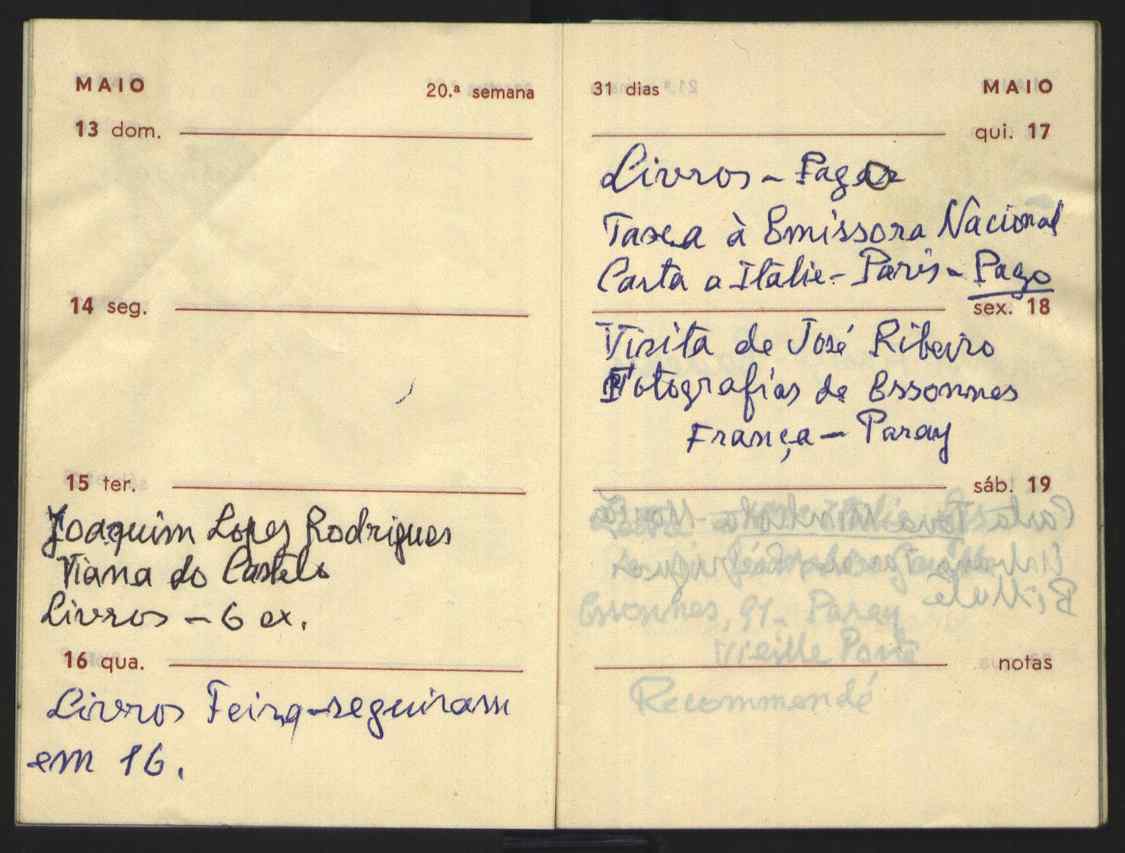 MAIO
20.ª semana
13 dom.
14 seg.
15 ter.
Joaquim Lopes Rodrigues
Viana do Castelo
Livros – 6 ex.
16 qua.
Livros Feira – seguiram
em 16.
31 dias
MAIO
qui. 17
Livros – Pagar
Taxa à Emissora Nacional
Carta a Italie – Paris – Pago
sex. 18
Visita de José Ribeiro
Fotografias de Essonnes
França – Paray
sáb. 19
Essonnes, 91 – Paray
Vieille Poste
notas
Recommendé